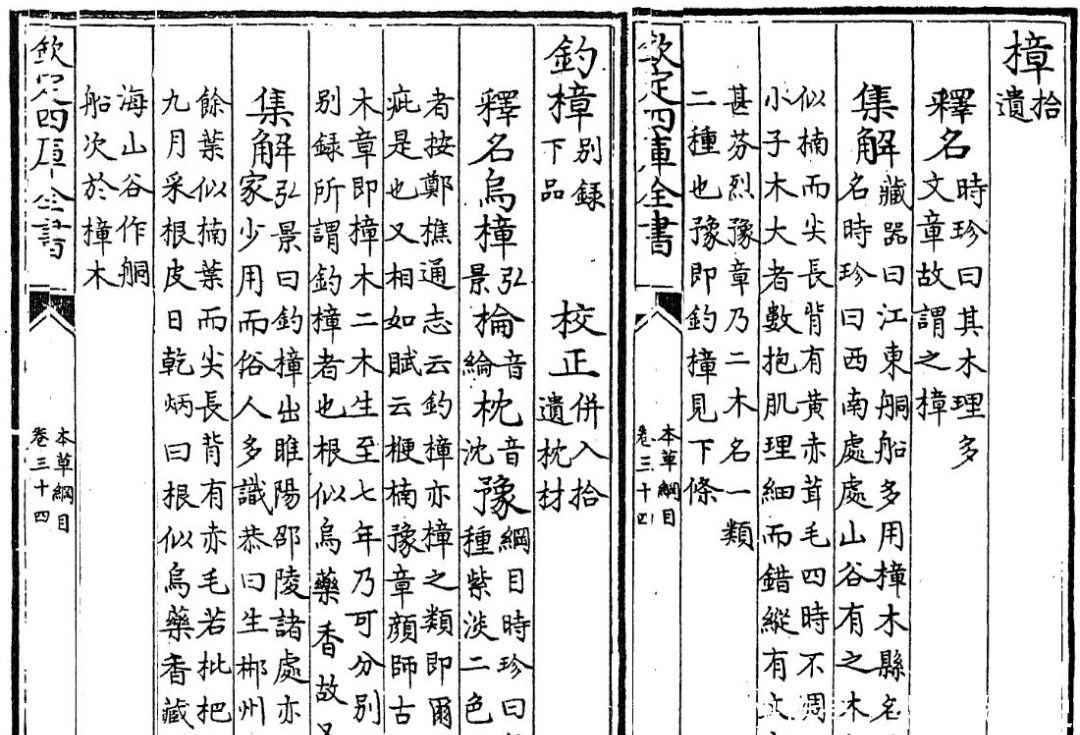 樟拾
遺
釋名時珍曰其木理多
文章故謂之樟
集解藏器曰江東舸船多用樟木縣名
名時珍曰西南處處山谷有之木
似楠而尖長背有黄赤茸毛四時不凋
小子木大者數抱肌理細而錯縱有文
甚芬烈豫章乃二木名一類
二種也豫即釣樟見下條
欽定四庫全書
本草綱目
卷三十四
釣樟別録下品 校正併入拾遺枕材
釋名烏樟弘景棆音綸枕音沈豫綱目時珍曰
種紫淡二色
者按鄭樵通志云釣樟亦樟之類即爾
疵是也又相如賦云楩楠豫章顔師古
木章即樟木二木生至七年乃可分別
別録所謂釣樟者也根似烏藥香故又
集解弘景曰釣樟出睢陽邵陵諸處亦
家少用而俗人多識恭曰生郴州
餘葉似楠葉而尖長背有赤毛若枇杷
九月采根皮日乾炳曰根似烏藥香藏
海山谷作舸
船次於樟木
欽定四庫全書
本草綱目
卷三十四